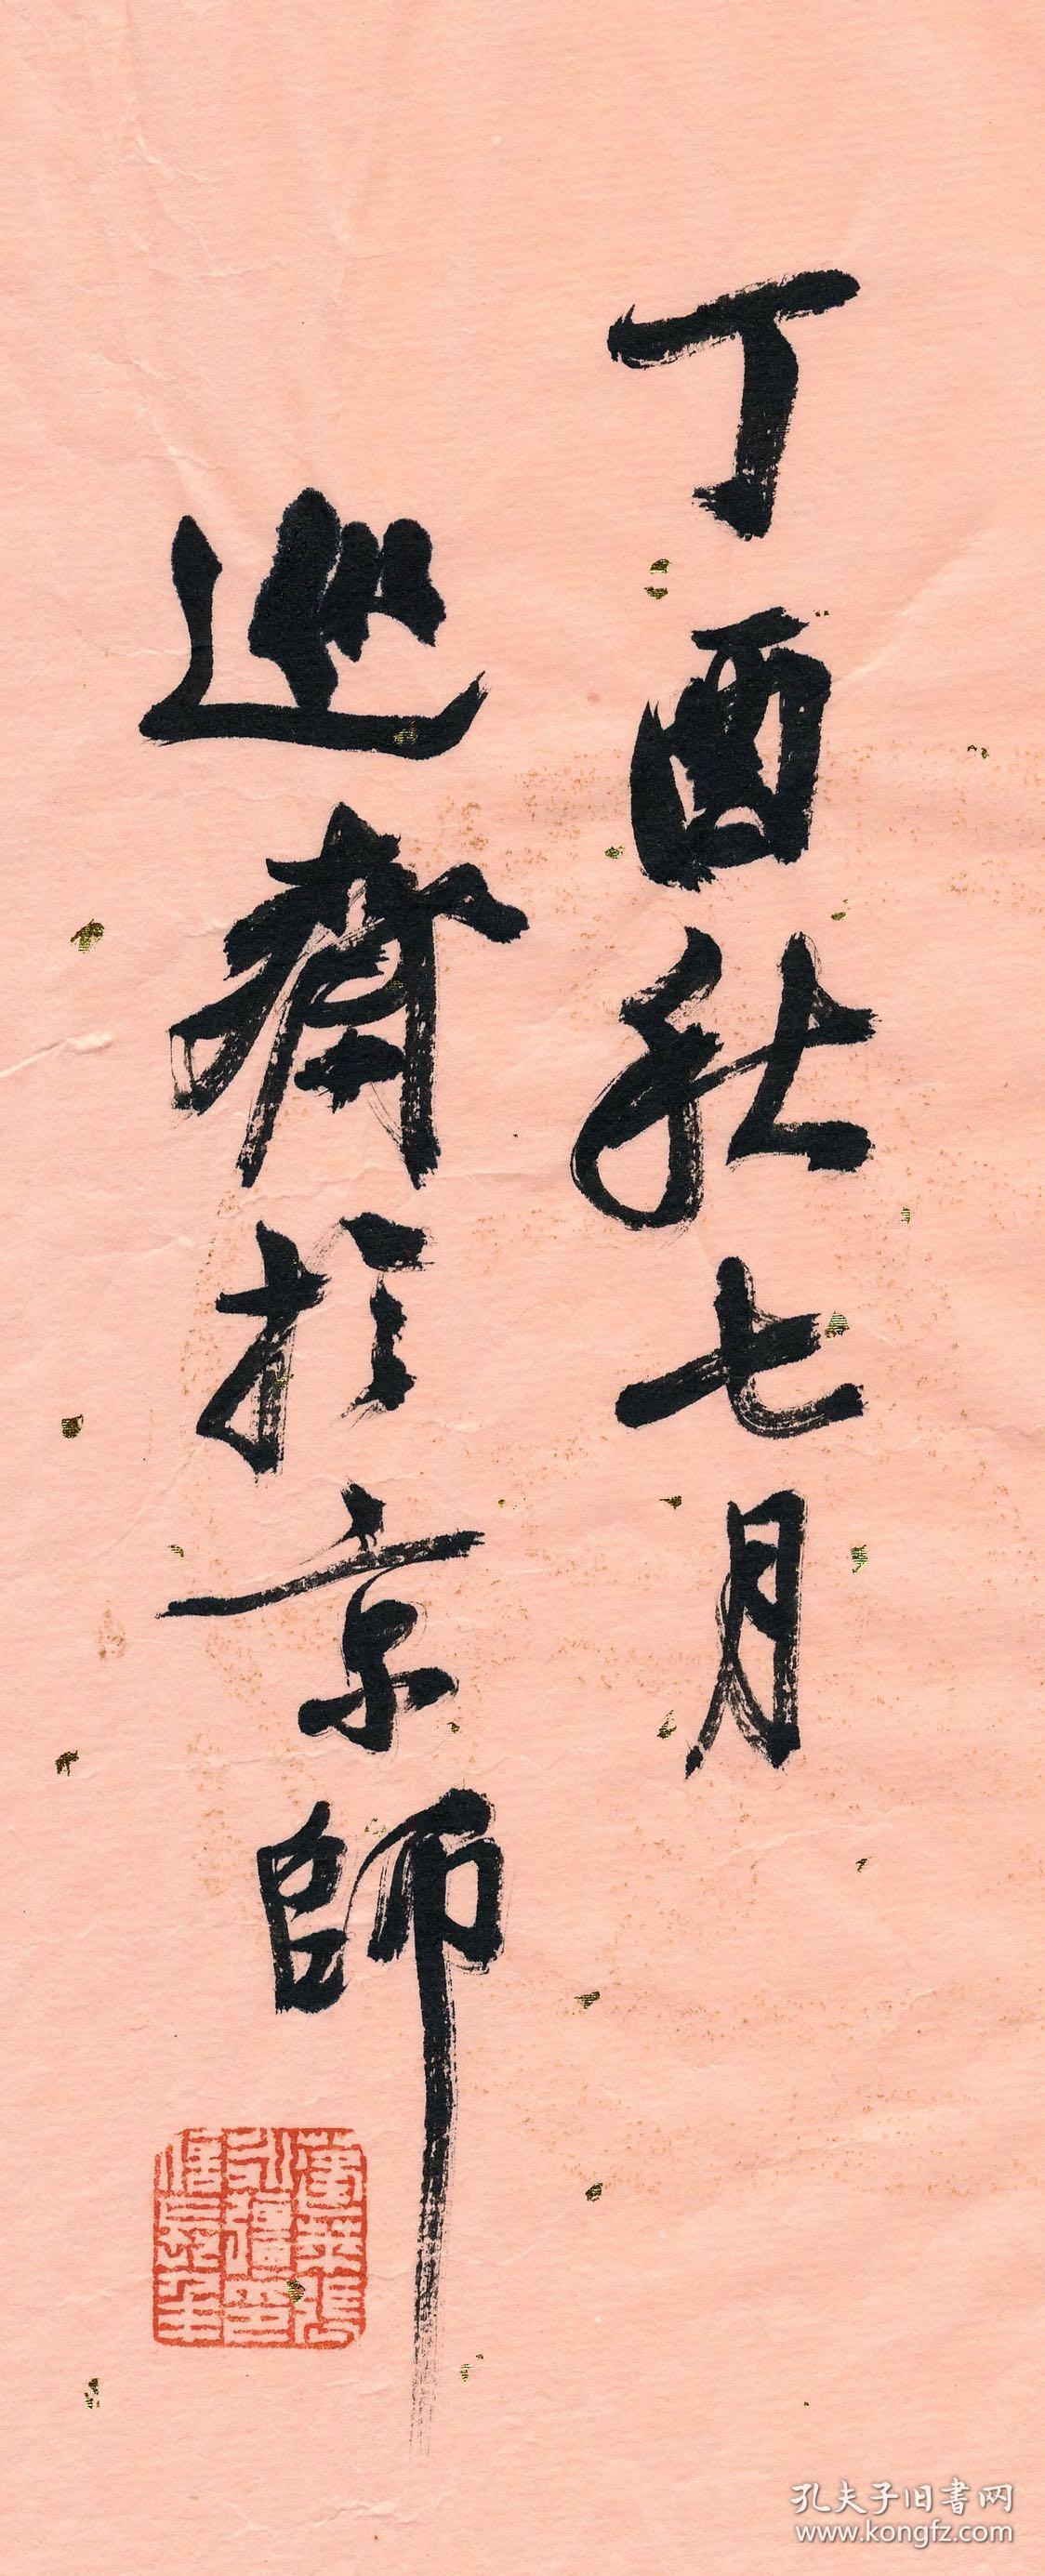 丁酉秋七月
巡齋於京師
孔夫子旧書网
www.kongfz.com